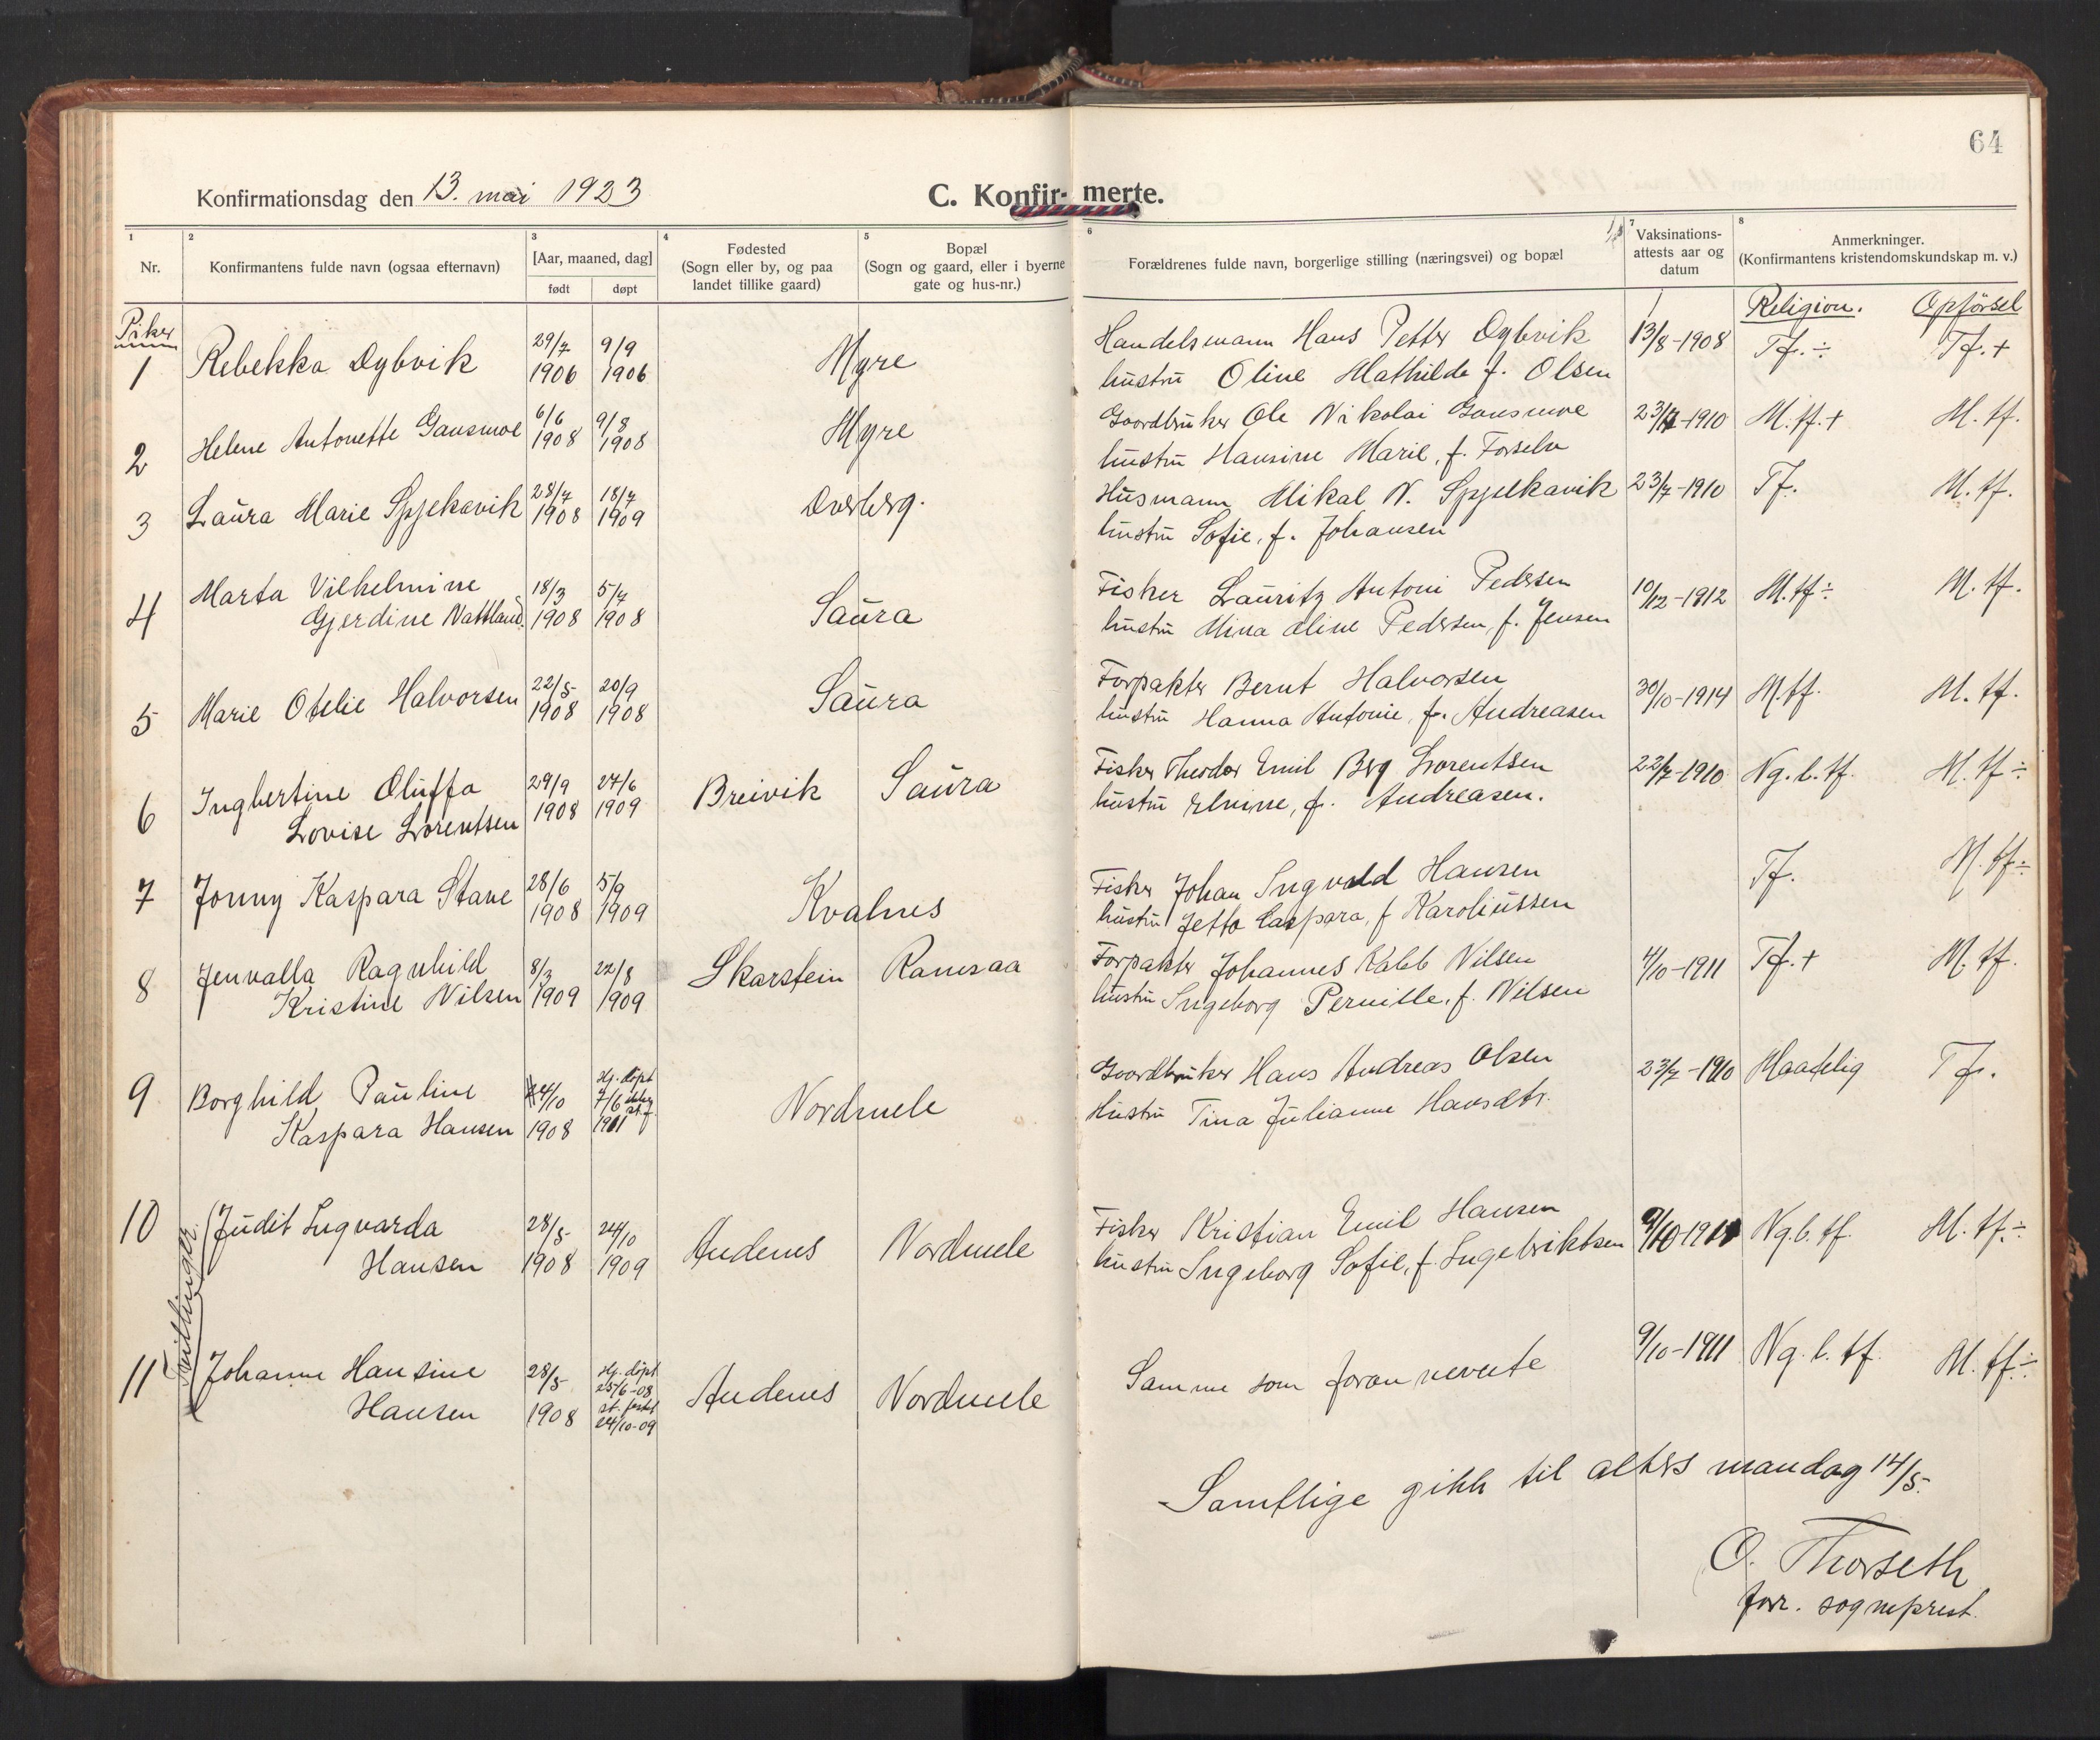 64
Konfirmationsdag den 13. mai 1923
C. Konfir- merte.
1 2 3 4 5 6 7 8
Nr.
Konfirmantens fulde navn (ogsaa efternavn)
[Aar, maaned, dag]
født døpt
Fødested
(Sogn eller by, og paa
landet tillike gaard)
Bopæl
(Sogn og gaard, eller i byerne
gate og hus-nr.)
Forældrenes fulde navn, borgerlige stilling (næringsvei) og bopæl
Vaksinations-
attests aar og
datum
Anmerkninger.
(Konfirmantens kristendomskundskap m. v.)
Piker
Religion. Opførsel
1 Rebekka Dybvik 29/7 1906 9/9 1906 Myre
Handelsmann Hans Petter Dybvik 13/8-1908 Tf.÷ Tf.+
hustru Oline Mathilde f. Olsen
2 Helene Antonette Gansmoe 6/6 1908 9/8 1908 Myre
Gaardbruker Ole Nikolai Gansmoe 23/7-1910 M.tf.+ M.tf.
hustru Hansine Marie, f. Forselv
3 Laura Marie Spjelkavik 28/7 1908 18/7 1909 Overberg.
Husmann Mikal N. Spjelkavik 23/7-1910 Tf. M.tf.
hustru Sofie, f. Johansen
4 Marta Vilhelmine 18/3 5/7
Gjerdine Nattland. 1908 1908 Saura
Fisker Lauritz Antoni Pedersen 10/12-1912 M.tf÷ M.tf.
hustru Mina Oline Pedersen, f. Jensen
5 Marie Otelie Halvorsen 22/5 1908 20/9 1908 Saura
Forpakter Bernt Halvorsen 30/10-1914 M.tf. M.tf.
hustru Hanna Antonie, f. Andreasen
6 Ingbertine Oluffa 29/9 27/6 Breivik Saura
Lovise Lorentsen 1908 1909
Fisker Theodor Emil Berg Lorentsen 22/7-1910 Ng.b.tf. M.tf÷
hustru Elvine, f. Andreasen.
7 Jonny Kaspara Stave 28/6 1908 5/9 1909 Kvalnes
Fisker Johan Ingvald Hansen Tf. M.tf÷
hustru Jetta Caspara, f Karoliussen
8 Jenvalla Ragnhild 8/3 22/8 Skarstein Ramsaa
Kristine Nilsen 1909 1909
Forpakter Johannes Kaleb Nilsen 4/10-1911 Tf.+ M.tf.
hustru Ingeborg Pernille, f. Nilsen
9 Borghild Pauline 24/10 Hj. döpt
7/6 ikke st. f.
Kaspara Hansen 1908 1911 Nordmele
Gaardbruker Hans Andreas Olsen 23/7-1910 Maadelig Tf.
Hustru Tina Julianne Hansdtr.
Tvillinger
10 Judit Ingvarda 28/5 24/10 Andenes Nordmele
Hansen 1908 1909
Fisker Kristian Emil Hansen 9/10-1911 Ng.b.tf. M.tf.÷
hustru Ingeborg Sofie, f. Ingebriktsen
11 Johanne Hansine 28/5 Hj. döpt
25/6-08
Hansen 1908 st. festet
24/10-09
Andenes Nordmele
Samme som foran nevnte 9/10-1911 Ng.b.tf. M.tf.÷
Samtlige gikk til alters mandag 14/5.
O. Thorseth
forr. sogneprest.